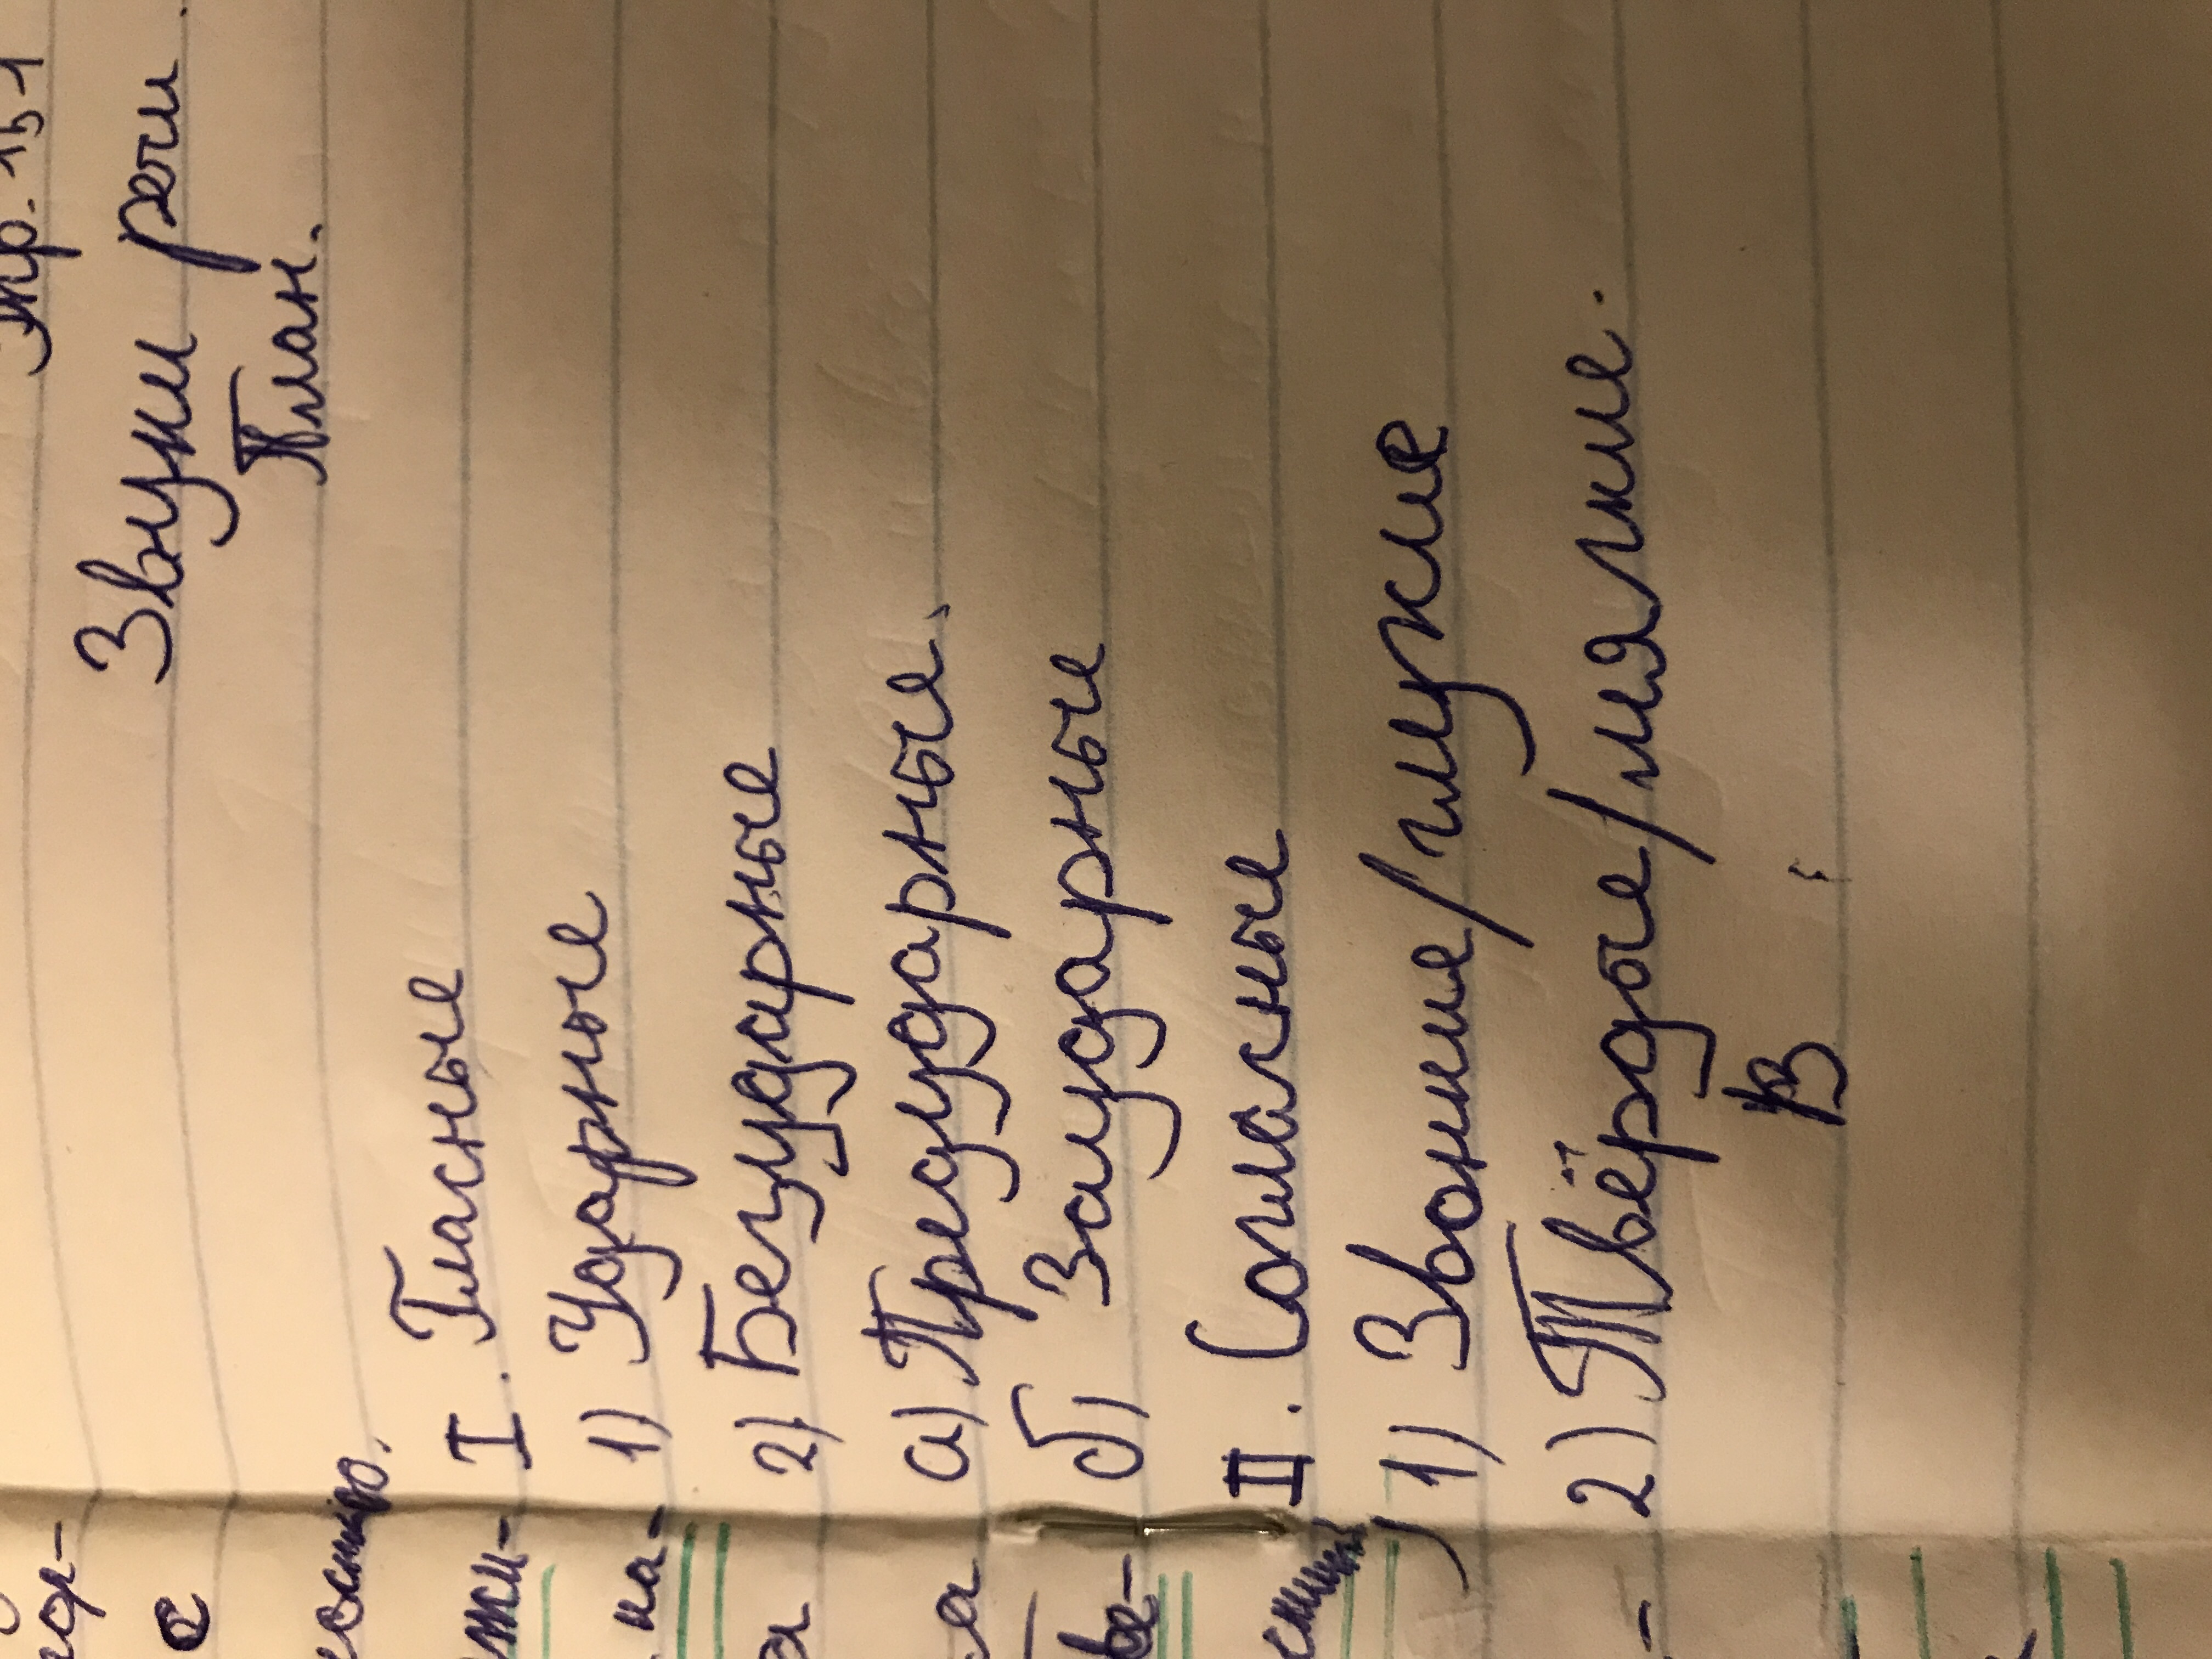 Звуки речи.
План.
I. Гласные
1) Ударные
2) Безударные
а) Предударные.
б) Заударные
II. Согласные
1) Звонкие/глухие
2) Твёрдые/мягкие.
В